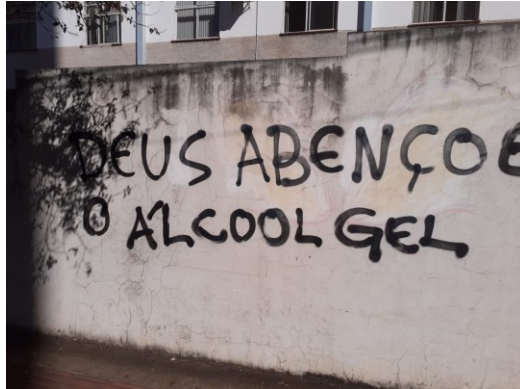 DEUS ABENÇOE
O ÁLCOOL GEL